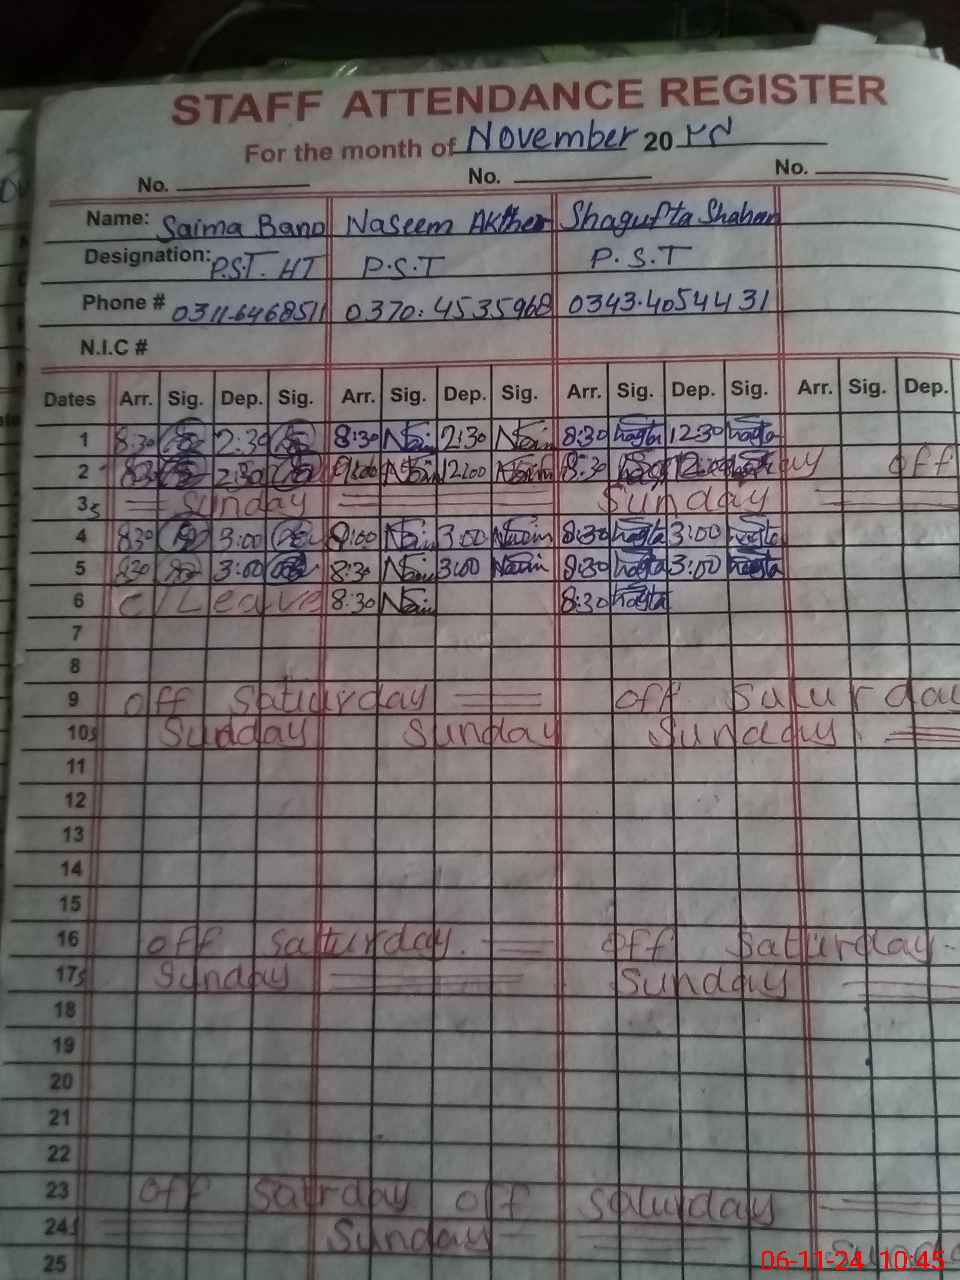 STAFF ATTENDANCE REGISTER
For the month of November 20
No. No. No.
Name: Saima Bano Naseem Akther Shagufta Shaheen
Designation: P.S.T. HT P.S.T P.S.T
Phone # 0311-6468511 0370.4535968 0343.4054431
N.I.C #
Dates Arr. Sig. Dep. Sig. Arr. Sig. Dep. Sig. Arr. Sig. Dep. Sig. Arr. Sig. Dep.
1 8:30 2:30 8:30 2:30 8:30 12:30
2 8:30 2:30 9:00 12:00 8:30 off
3s Sunday Sunday
4 830 3:00 9:00 3:00 8:30 3:00
5 830 3:00 8:30 3:00 8:30 3:00
6 c/Leave 8:30 8:30
7
8
9 off Saturday off Saturday
10s Sunday Sunday Sunday
11
12
13
14
15
16 off saturday. off Saturday.
17s Sunday Sunday
18
19
20
21
22
23 off satrday off saturday
24s Sunday
25
06-11-24 10:45